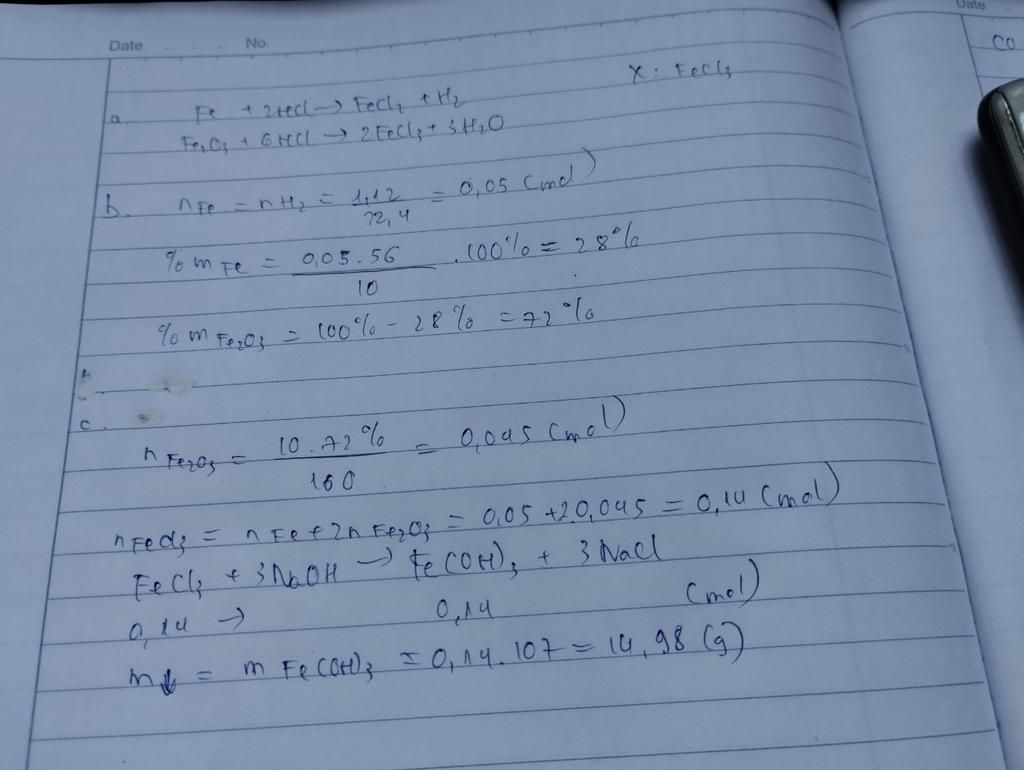 Date No.
Date
CO
X : FeCl₃
a. Fe + 2HCl → FeCl₂ + H₂
Fe₂O₃ + 6HCl → 2FeCl₃ + 3H₂O
b. nFe = nH₂ = 1,12/22,4 = 0,05 (mol)
% mFe = 0,05.56/10 .100% = 28%
% mFe₂O₃ = 100% - 28% = 72%
c.
nFe₂O₃ = 10.72%/160 = 0,045 (mol)
nFeCl₃ = nFe + 2nFe₂O₃ = 0,05 + 2.0,045 = 0,14 (mol)
FeCl₃ + 3NaOH → Fe(OH)₃ + 3NaCl
0,14 → 0,14 (mol)
m↓ = mFe(OH)₃ = 0,14.107 = 14,98 (g)